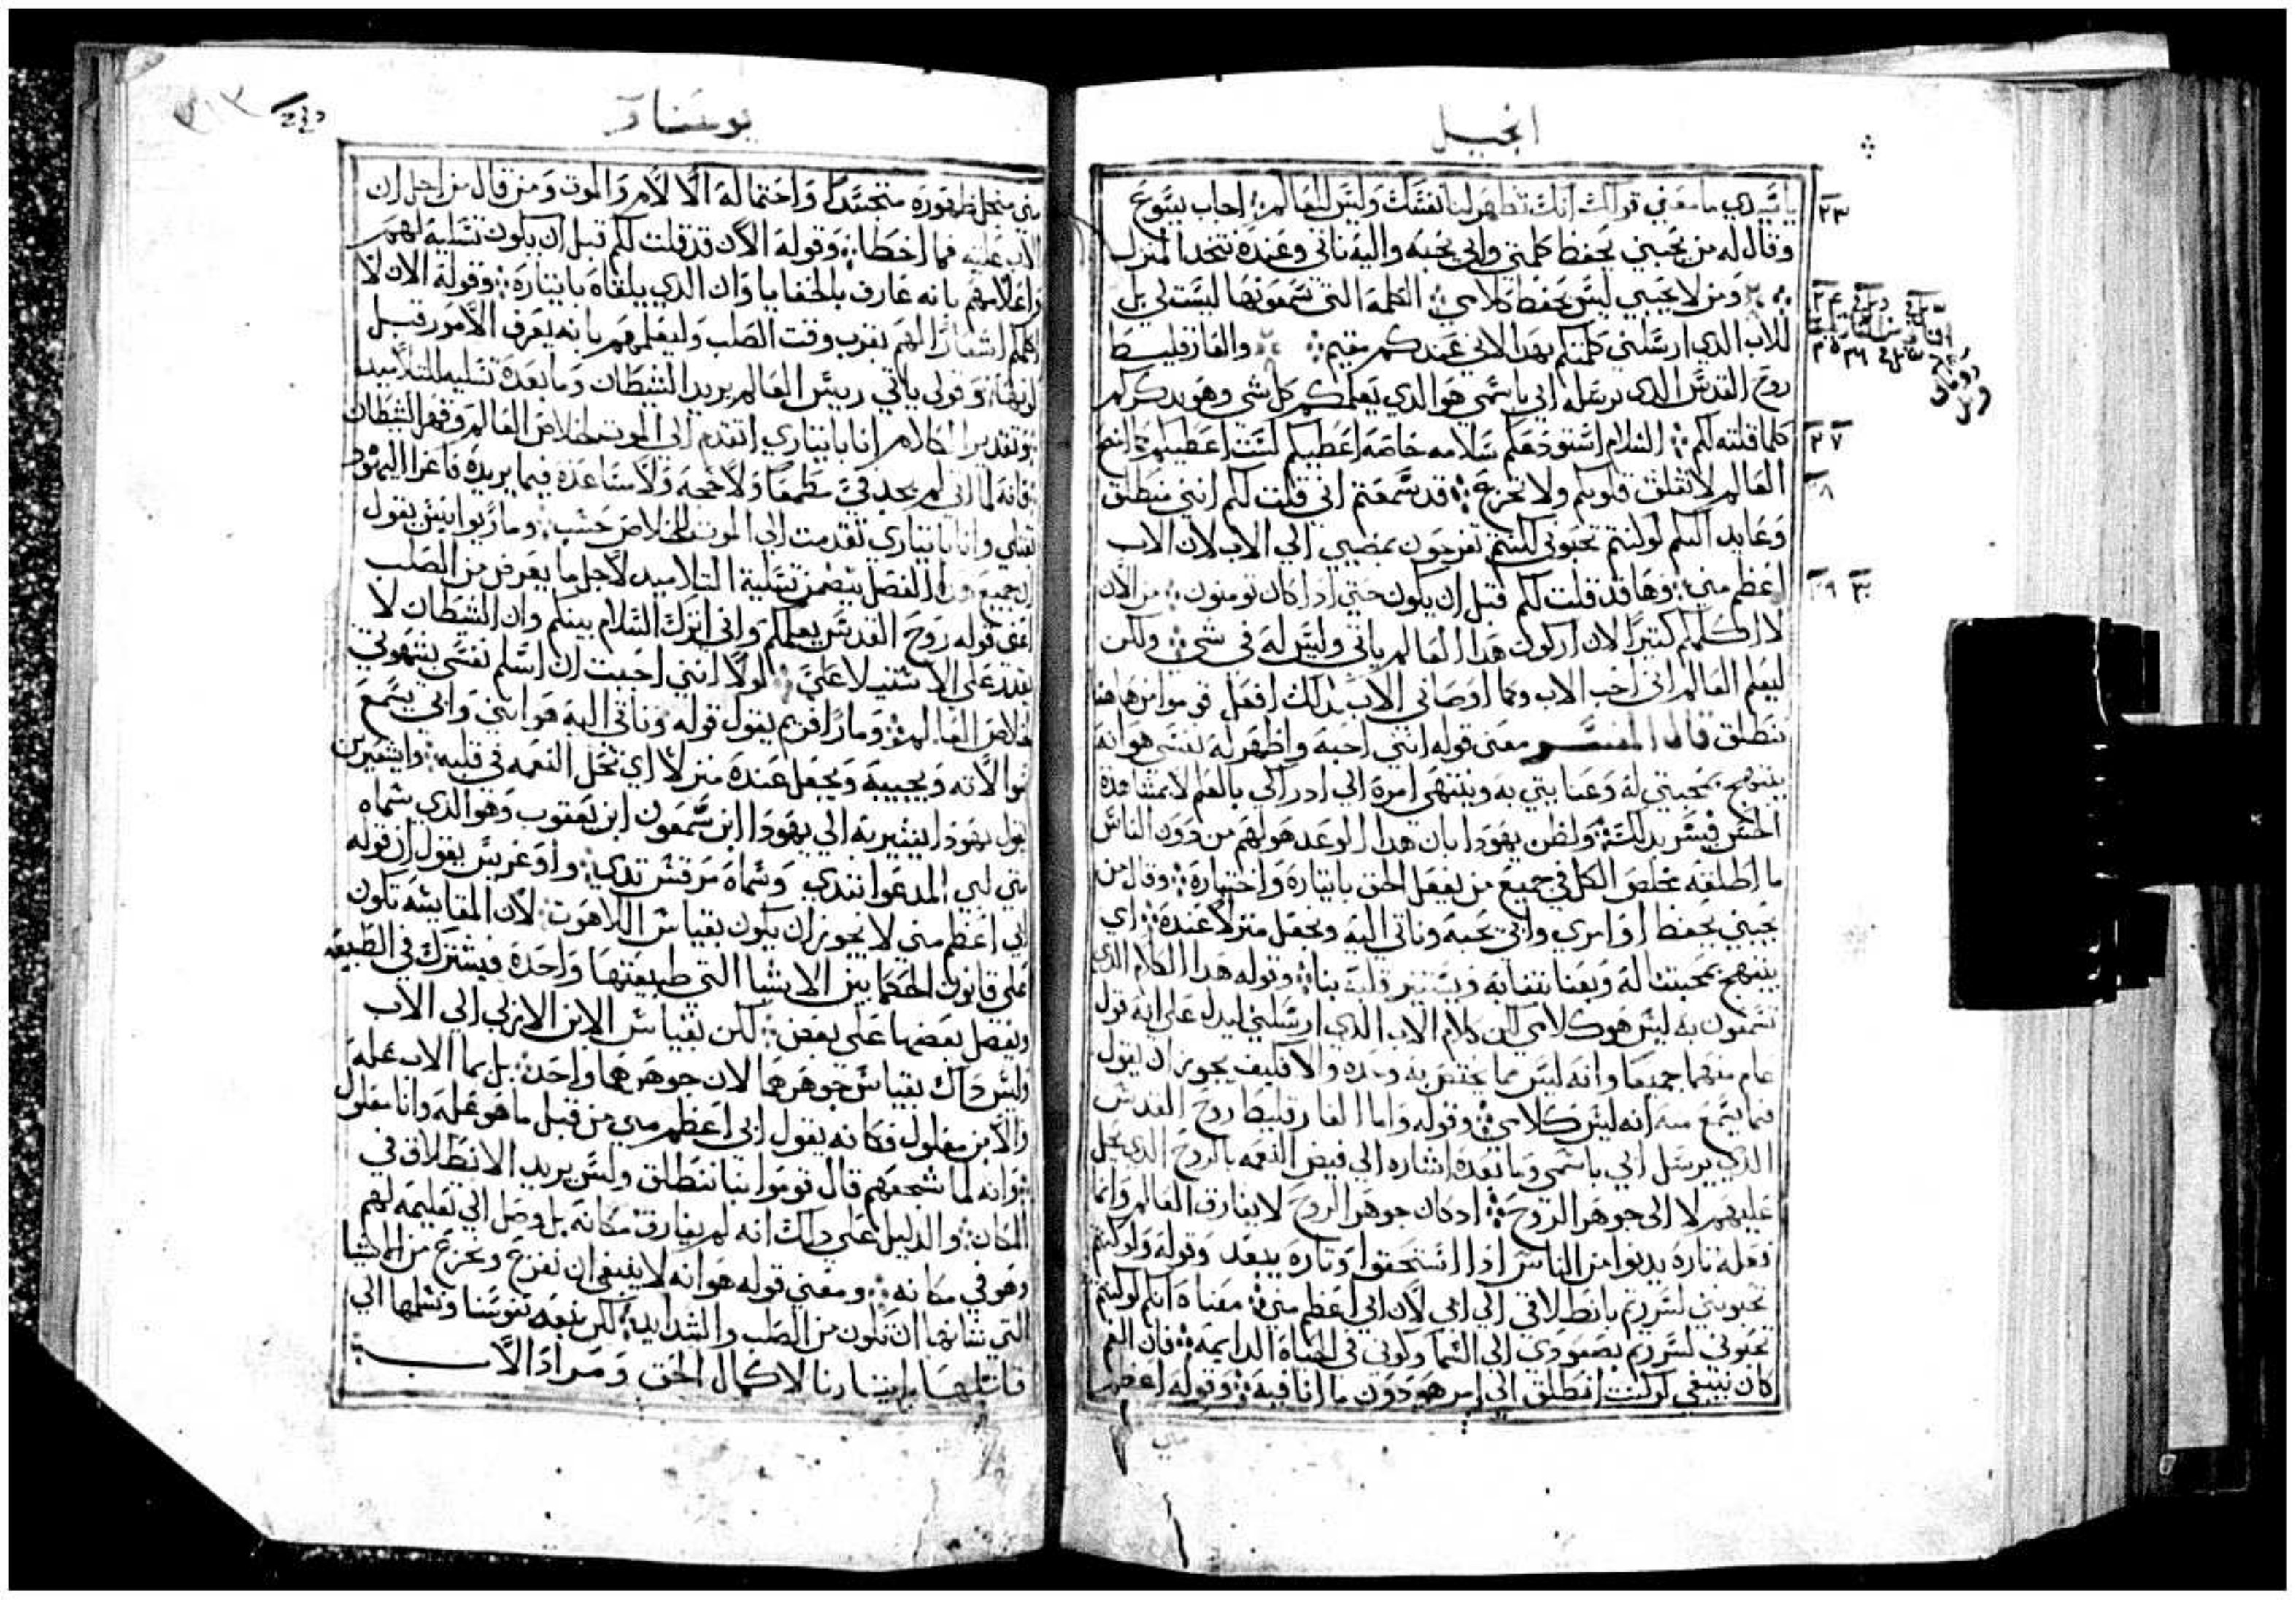 انجيل
ياسيدي ما معني قولك انك تظهر لنا نفسك وليس للعالم اجاب يسوع
٢٣
وقال له من يحبني يحفظ كلمتي وابي يحبه واليه ناتي وعنده نتخد المنزل
ومن لا يحبني ليس يحفظ كلامي الكلمه التي تسمعونها ليست لي بل
للاب الدي ارسلني كلمتكم بهدا لاني عندكم مقيم والفارقليط
روح القدس الدي يرسله ابي باسمي هو الدي يعلمكم كل شي وهو يدكركم
كلما قلته لكم السلام استودعكم سلامه خاصه اعطيكم لست اعطيكم كما منح
٢٧
العالم لا تقلق قلوبكم ولا تجزع قد سمعتم اني قلت لكم انني منطلق
وعايد اليكم لوكنتم تحبوني لكنتم تفرحون بمضيي الي الاب لان الاب
اعظم مني وها قد قلت لكم قبل ان يكون حتي ادا كان تومنون من الان
لا اكلمكم كتيرا لان اركون هدا العالم ياتي وليس له في شي ولكن
ليعلم العالم اني احب الاب وكما اوصاني الاب بدلك افعل قوموا من هاهنا
ننطلق قال المفسر معني قوله انني احبه واظهر له نفسي هو انه
يبتهج بمحبتي له وعنايتي به وينتهي امره الي ادراكي بالعلم لا بمشاهدة
الحس فيسر بدلك ولظن يهودا بان هدا الوعد هو لهم من دون الناس
ما اطلقه مخلص الكل في جميع من يفعل الحق بايتاره واختياره وقال من
يحبني يحفظ اوامري وابي يحبه وناتي اليه ونجعل منزلا عنده اي
يبتهج بمحبتنا له وبعنايتنا به ويستنير قلبه بنا وقوله هدا الكلام الدي
تسمعون به ليس هو كلامي لكن كلام الاب الدي ارسلني ليدل علي انه قول
عام منهما جميعا وانه ليس مما يختص به وحده والا فكيف يجوز ان يقول
فيما يسمع منه انه ليس كلامي وقوله واما الفارقليط روح القدس
الدي يرسل ابي باسمي وما بعده اشاره الي فيض النعمه بالروح الدي يحل
عليهم لا الي جوهر الروح اد كان جوهر الروح لا يفارق العالم وانما
فعله تاره يدنوا من الناس ادا استحقوا وتاره يبعد وقوله ولوكنتم
تحبونني لسررتم بانطلاقي الي ابي لان ابي اعظم مني معناه انكم لوكنتم
تحبوني لسررتم بصعودي الي السما وكوني في الحياه الدايمه فان الغم
كان ينبغي لوكنت انطلق الي امر هو دون ما انا فيه وقوله اعظم
مني
يوسنا
٣١٣
مني من اجل ظهوره متجسدا واحتماله الالام والموت ومن قال من اجل ان
الاب عليه فما اخطا وقوله الان قد قلت لكم قبل ان يكون تسلية لهم
واعلامهم بانه عارف بالخفايا وان الدي يلقاه بايتاره وقوله الان لا
اكلمكم اشعارا لهم بقرب وقت الصلب وليعلمهم بانه يعرف الامور قبل
كونها وقولي ياتي رييس العالم يريد الشيطان وما بعده تسليه للتلاميد
وتقدير الكلام انا بايتاري اتقدم الي الموت لخلاص العالم وقهر الشيطان
فانه لما اني لم يجد في مطمعا ولا حجه ولا مساعده فيما يريده فاغرا اليهود
لقتلي وانا بايتاري تقدمت الي الموت للخلاص حسب وماريوانيس يقول
ان جميع هدا الفصل يتضمن تسلية التلاميد لاجل ما يعرض من الصلب
اعني قوله روح القدس يعلمكم واني اترك السلام بينكم وان الشيطان لا
يقدر علي الاستيلا علي لولا انني احببت ان اسلم نفسي بشهوتي
لخلاص العالم ومارافريم يقول قوله وناتي اليه هو انني وابي يسمع
سوالاته ويجيبه ويجعل عنده منزلا اي تحل النعمه في قلبه وايشعين
يقول يهودا يشير به الي يهودا ابن سمعون ابن يعقوب وهو الدي سماه
متي لبي المدعوا تندي وسماه مرقس تدي واوغريس يقول ان قوله
ابي اعظم مني لا يجوز ان يكون بقياس اللاهوت لان المقايسه تكون
علي قانون الحكما بين الاشيا التي طبيعتها واحدة فيشترك في الطبيعه
ويفضل بعضها علي بعض لكن بقياس الابن الازلي الي الاب
وليس داك بقياس جوهرهما لان جوهرهما واحد بل بما الاب عله
والابن معلول فكانه يقول ابي اعظم مني من قبل ما هو عله وانا معلول
وانه لما شجعهم قال قوموا بنا ننطلق وليس يريد الانطلاق في
المكان والدليل علي دلك انه لم يفارق مكانه بل وصل الي تعليمه لهم
وهو في مكانه ومعني قوله هو انه لا ينبغي ان نفزع ونجزع من الاشيا
التي شانها ان تكون من الصلب والشدايد لكن نتبعه نفوسنا ونسلمها الي
قاتلها بايتارنا لاكمال الحق ومراد الاب